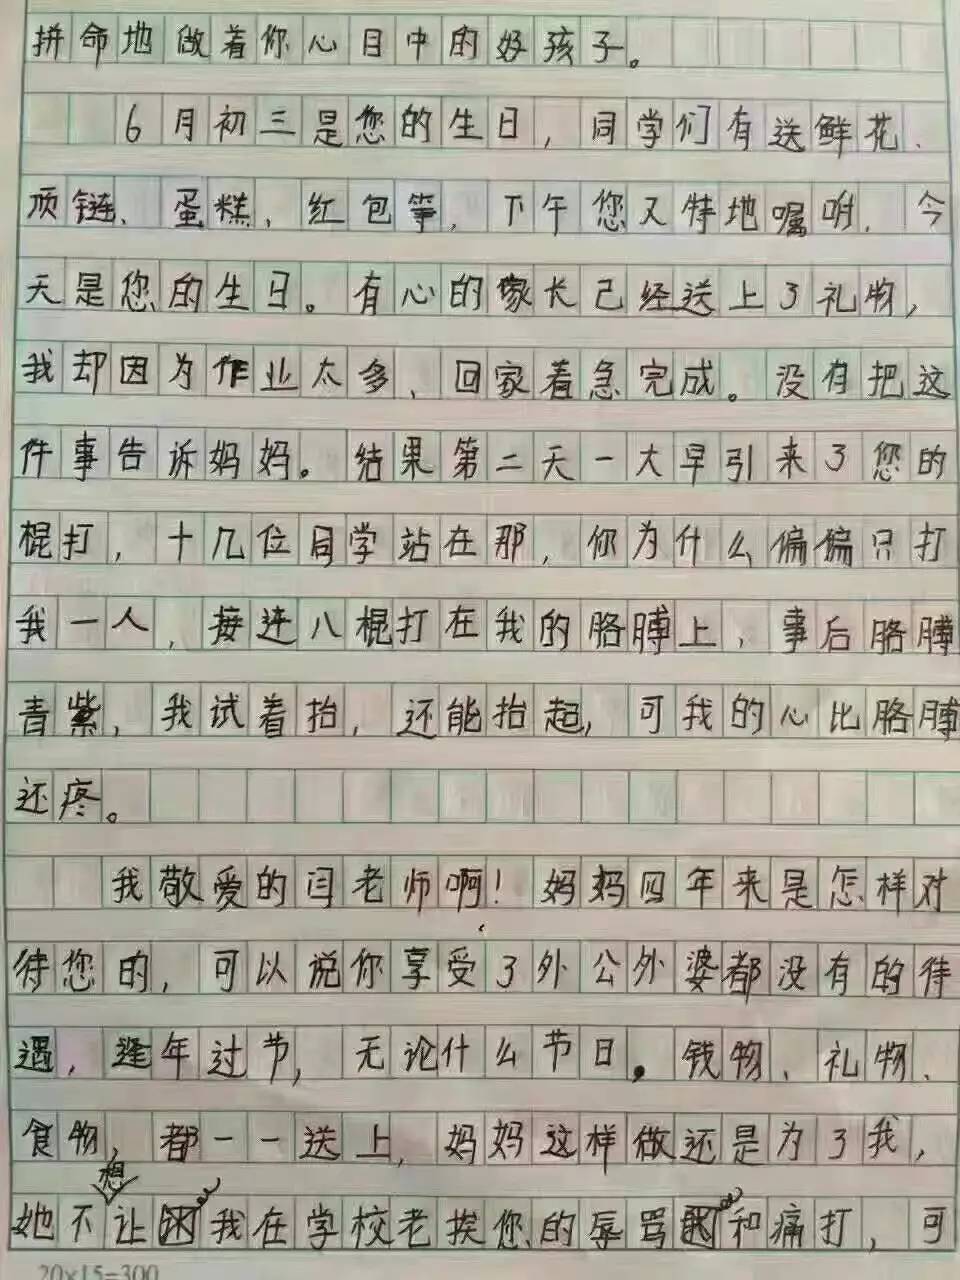 拼命地做着你心目中的好孩子。
6月初三是您的生日，同学们有送鲜花、
项链、蛋糕、红包等，下午您又特地嘱咐，今
天是您的生日。有心的家长已经送上了礼物，
我却因为作业太多，回家着急完成。没有把这
件事告诉妈妈。结果第二天一大早引来了您的
棍打，十几位同学站在那，你为什么偏偏只打
我一人，接连八棍打在我的胳膊上，事后胳膊
青紫，我试着抬，还能抬起，可我的心比胳膊
还疼。
我敬爱的闫老师啊！妈妈四年来是怎样对
待您的，可以说你享受了外公外婆都没有的待
遇，逢年过节，无论什么节日。钱物、礼物、
食物，都一一送上，妈妈这样做还是为了我，
她不想让我在学校老挨您的辱骂和痛打，可
20×15=300